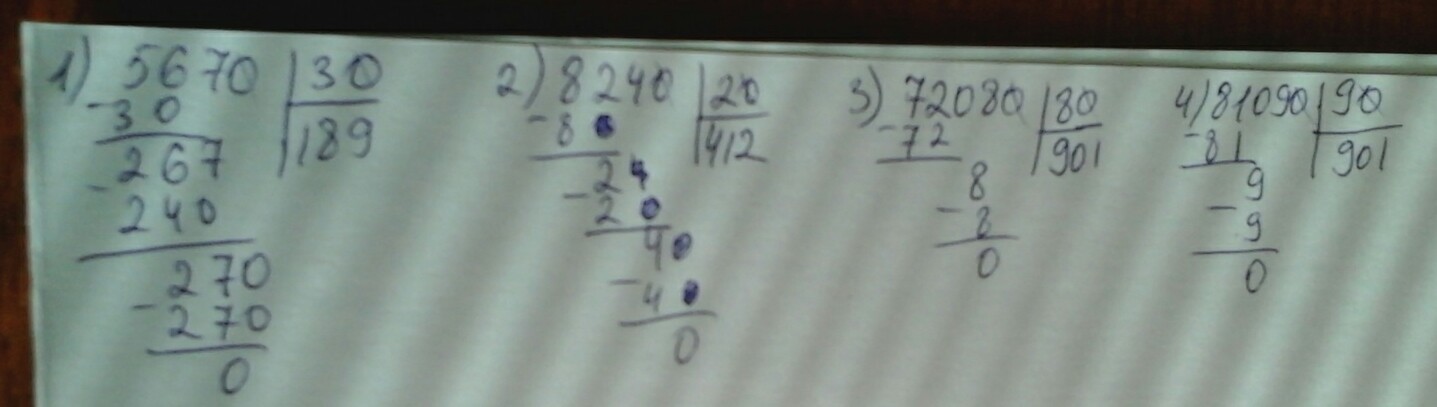 1) 5670 30
- 30 189
267
- 240
270
- 270
0
2) 8240 20
- 80 412
24
- 20
40
- 40
0
3) 72080 80
- 72 901
8
- 8
0
4) 81090 90
- 81 901
9
- 9
0